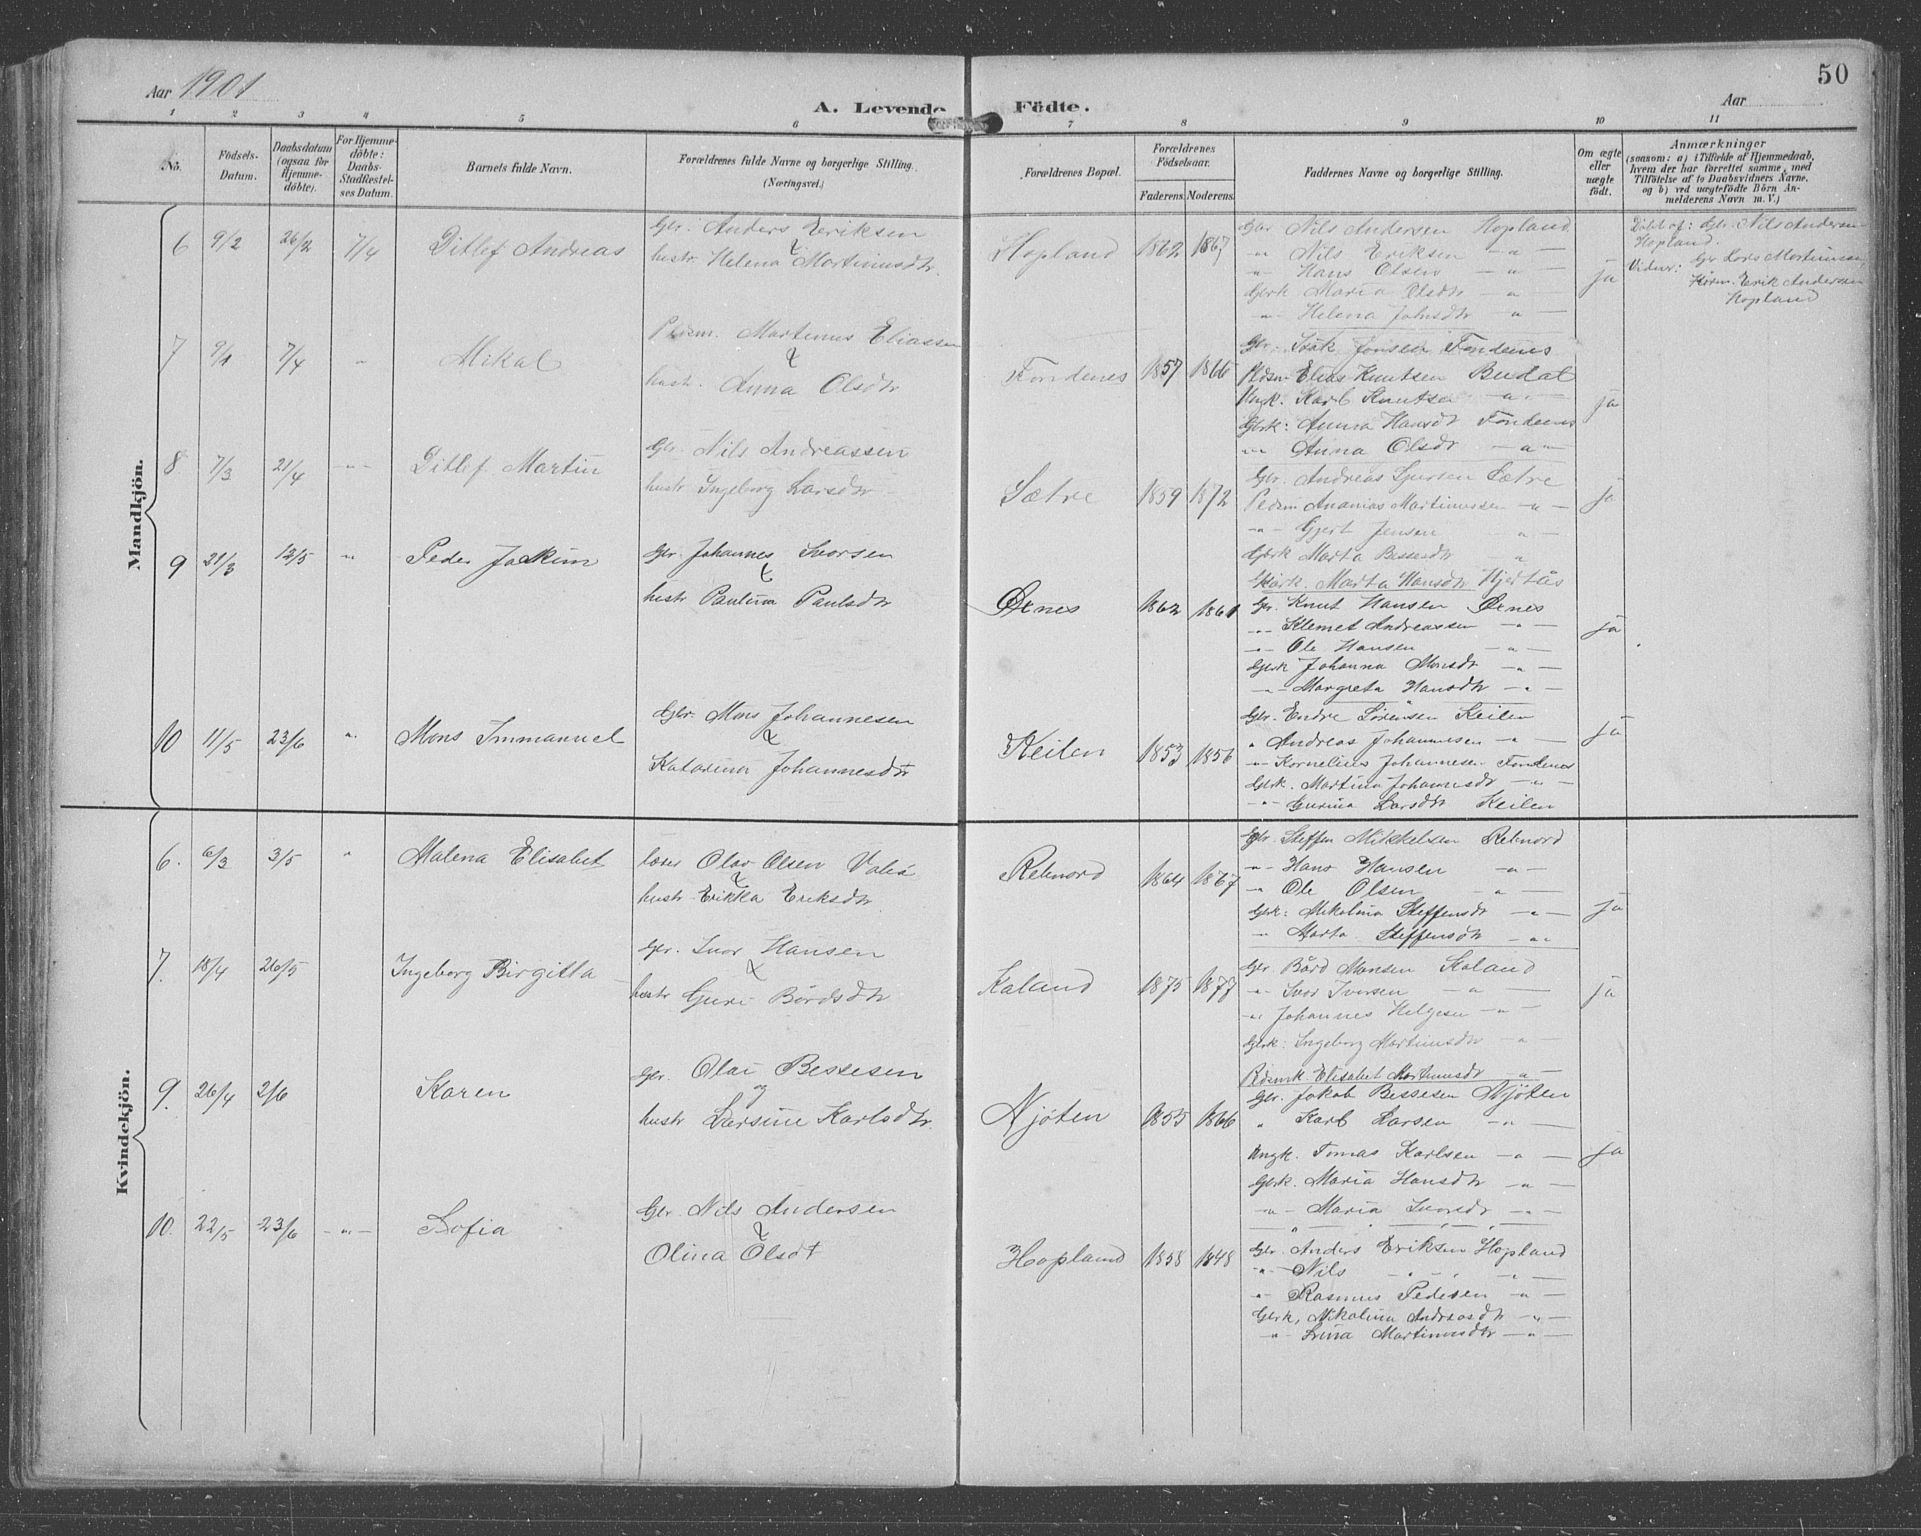 50
Aar 1901
A. Levende Födte.
Aar
1 2 3 4 5 6 7 8 9 10 11
No.
Födsels-Datum.
Daabsdatum (ogsaa for Hjemme-döbte).
For Hjemme-döbte: Daabs-Stadfæstel-ses Datum.
Barnets fulde Navn.
Forældrenes fulde Navne og borgerlige Stilling. (Næringsvei.)
Forældrenes Bopæl.
Forældrenes Födselsaar.
Faderens. Moderens.
Faddernes Navne og borgerlige Stilling.
Om ægte eller uægte födt.
Anmærkninger
(saasom: a) i Tilfælde af Hjemmedaab,
hvem der har forrettet samme, med
Tilföielse af to Daabsvidners Navne,
og b) ved uægtefödte Börn An-
melderens Navn m. V.)
Mandkjön.
6 9/2 26/2 7/4 Ditlef Andreas
Gbr. Anders Eriksen
hustr Helena Martinusdtr.
Hopland 1862 1867
Gbr Nils Andersen Hopland
" Nils Eriksen — " —
" Hans Olsen — " —
Gbrk Maria Olsdtr — " —
—"— Helena Johnsdtr — " —
ja
Döbt af: Gbr. Nils Andersen
Hopland.
Vidner: Gbr Lars Martinusen
Erik Andersen
Hopland
7 9/1 7/4 " Mikal
Pldsm. Martinus Eliassen
hustr. Anna Olsdtr
Fondenes 1857 1866
Gbr. Isak Jonsen Fondenes
Pldsm Elias Knutsen Budal
Ungk. Karl Knutsen — " —
Gbrk: Anna Hansdtr Fondenes
" Anna Olsdtr — " —
ja
8 7/3 21/4 —"— Ditlef Martin
Gbr. Nils Andreassen
hustr Ingeborg Larsdtr
Sætre 1859 1872
Gbr. Andreas Sjursen Sætre
Pldsm Ananias Martinussen — " —
—"— Gjert Jensen "
Gbrk Marta Bessesdtr "
Marta Hansdtr Hjertås
ja
9 21/3 12/5 " Peder Joakim
Gbr. Johannes Ivorsen
hustr Paulina Paulsdtr
Øenes 1862 1861
Gbr. Knut Hansen Øenes
—"— Klemet Andreassen — " —
—"— Ole Hansen — " —
Gbrk Johanna Monsdtr — " —
—"— Margreta Hansdtr — " —
ja
10 11/5 23/6 " Mons Immanuel
Gbr. Mons Johannesen
Katarina Johannesdtr
Keilen 1853 1856
Gbr. Endre Sørensen Keilen
" Andreas Johannesen — " —
—"— Kornelius Johannesen Fondenes
Gbrk. Martina Johannesdtr — " —
—"— Gurina Larsdtr Keilen
ja
Kvindekjön.
6. 6/3 3/5 " Malena Elisabet
lærer Olav Olsen
hustr Erikka Eriksdtr.
Rebnord 1864 1867
Gbr. Steffen Mikkelsen Rebnord
—"— Hans Hansen — " —
—"— Ole Olsen — " —
Gbrk: Mikalina Steffensdtr — " —
—"— Marta Steffensdtr — " —
ja
7. 18/4 26/5 Ingeborg Birgitta
Gbr. Ivor Hansen
hustr Guri Bårdsdtr
Kaland 1875 1877
Gbr. Bård Monsen Kaland
—"— Ivor Iversen — " —
—"— Johannes Helgesen — " —
Gbrk: Ingeborg Martinusdtr — " —
Elisabet Martinusdtr — " —
ja
9. 26/4 2/6 Karen
Gbr. Olai Bessesen
og
hustr Larsine Karlsdtr.
Njøten 1855 1866
Gbr. Jakob Bessesen Njøten
" Karl Larsen — " —
Ungk. Tomas Karlsen — " —
Gbrk. Maria Hansdtr — " —
—"— Maria Ivorsdtr — " —
ja
10. 22/5 23/6 —"— Sofia
Gbr. Nils Andersen
Olina Olsdt
Hopland 1858 1848
Gbr. Anders Eriksen Hopland
—"— Nils — " — — " —
" Rasmus Pedersen — " —
Gbrk, Mikalina Andreasdtr — " —
—"— Martinusdtr — " —